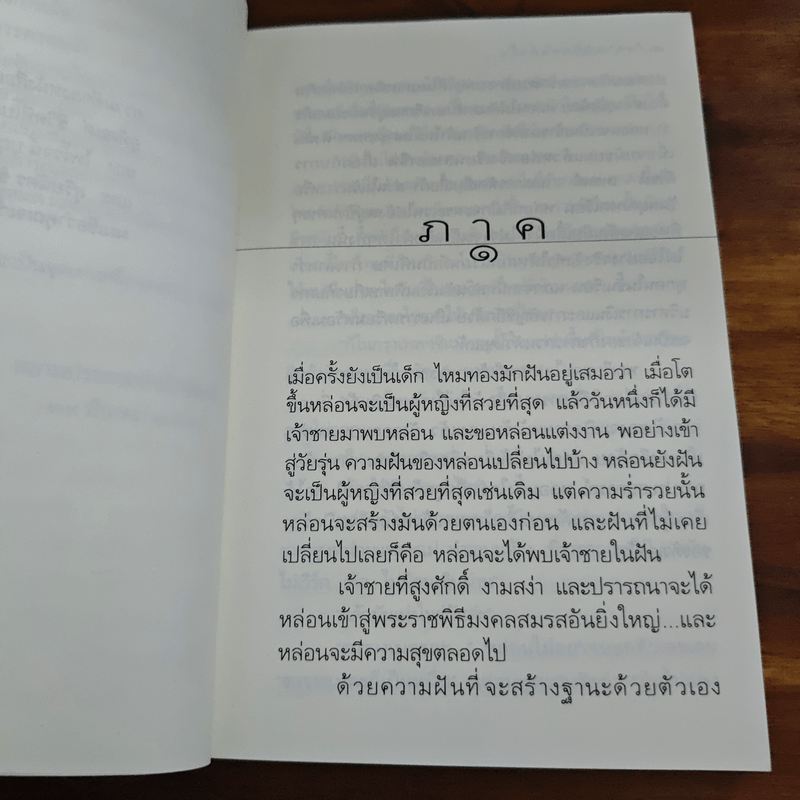 ภาค
๑
เมื่อครั้งยังเป็นเด็ก ไหมทองมักฝันอยู่เสมอว่า เมื่อโต
ขึ้นหล่อนจะเป็นผู้หญิงที่สวยที่สุด แล้ววันหนึ่งก็ได้มี
เจ้าชายมาพบหล่อน และขอหล่อนแต่งงาน พอย่างเข้า
สู่วัยรุ่น ความฝันของหล่อนเปลี่ยนไปบ้าง หล่อนยังฝัน
จะเป็นผู้หญิงที่สวยที่สุดเช่นเดิม แต่ความร่ำรวยนั้น
หล่อนจะสร้างมันด้วยตนเองก่อน และฝันที่ไม่เคย
เปลี่ยนไปเลยก็คือ หล่อนจะได้พบเจ้าชายในฝัน
เจ้าชายที่สูงศักดิ์ งามสง่า และปรารถนาจะได้
หล่อนเข้าสู่พระราชพิธีมงคลสมรสอันยิ่งใหญ่...และ
หล่อนจะมีความสุขตลอดไป
ด้วยความฝันที่ จะสร้างฐานะด้วยตัวเอง